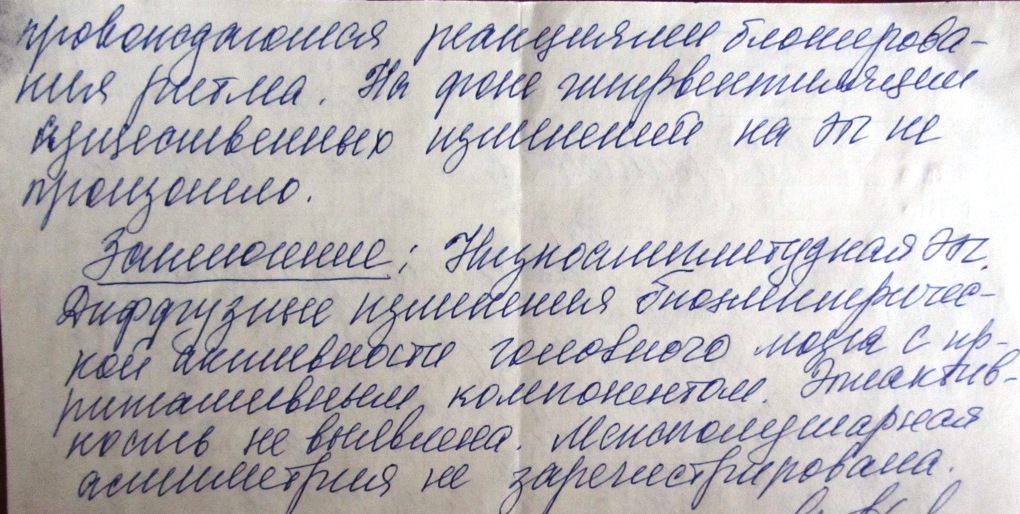 провождающиеся реакциями блокирова-
ния ритма. На фоне гипервентиляции
существенных изменений на ЭЭГ не
произошло.
Заключение: Низкоамплитудная ЭЭГ.
Диффузные изменения биоэлектричес-
кой активности головного мозга с ир-
ритативным компонентом. Эпиактив-
ность не выявлена. Межполушарная
асимметрия не зарегистрирована.